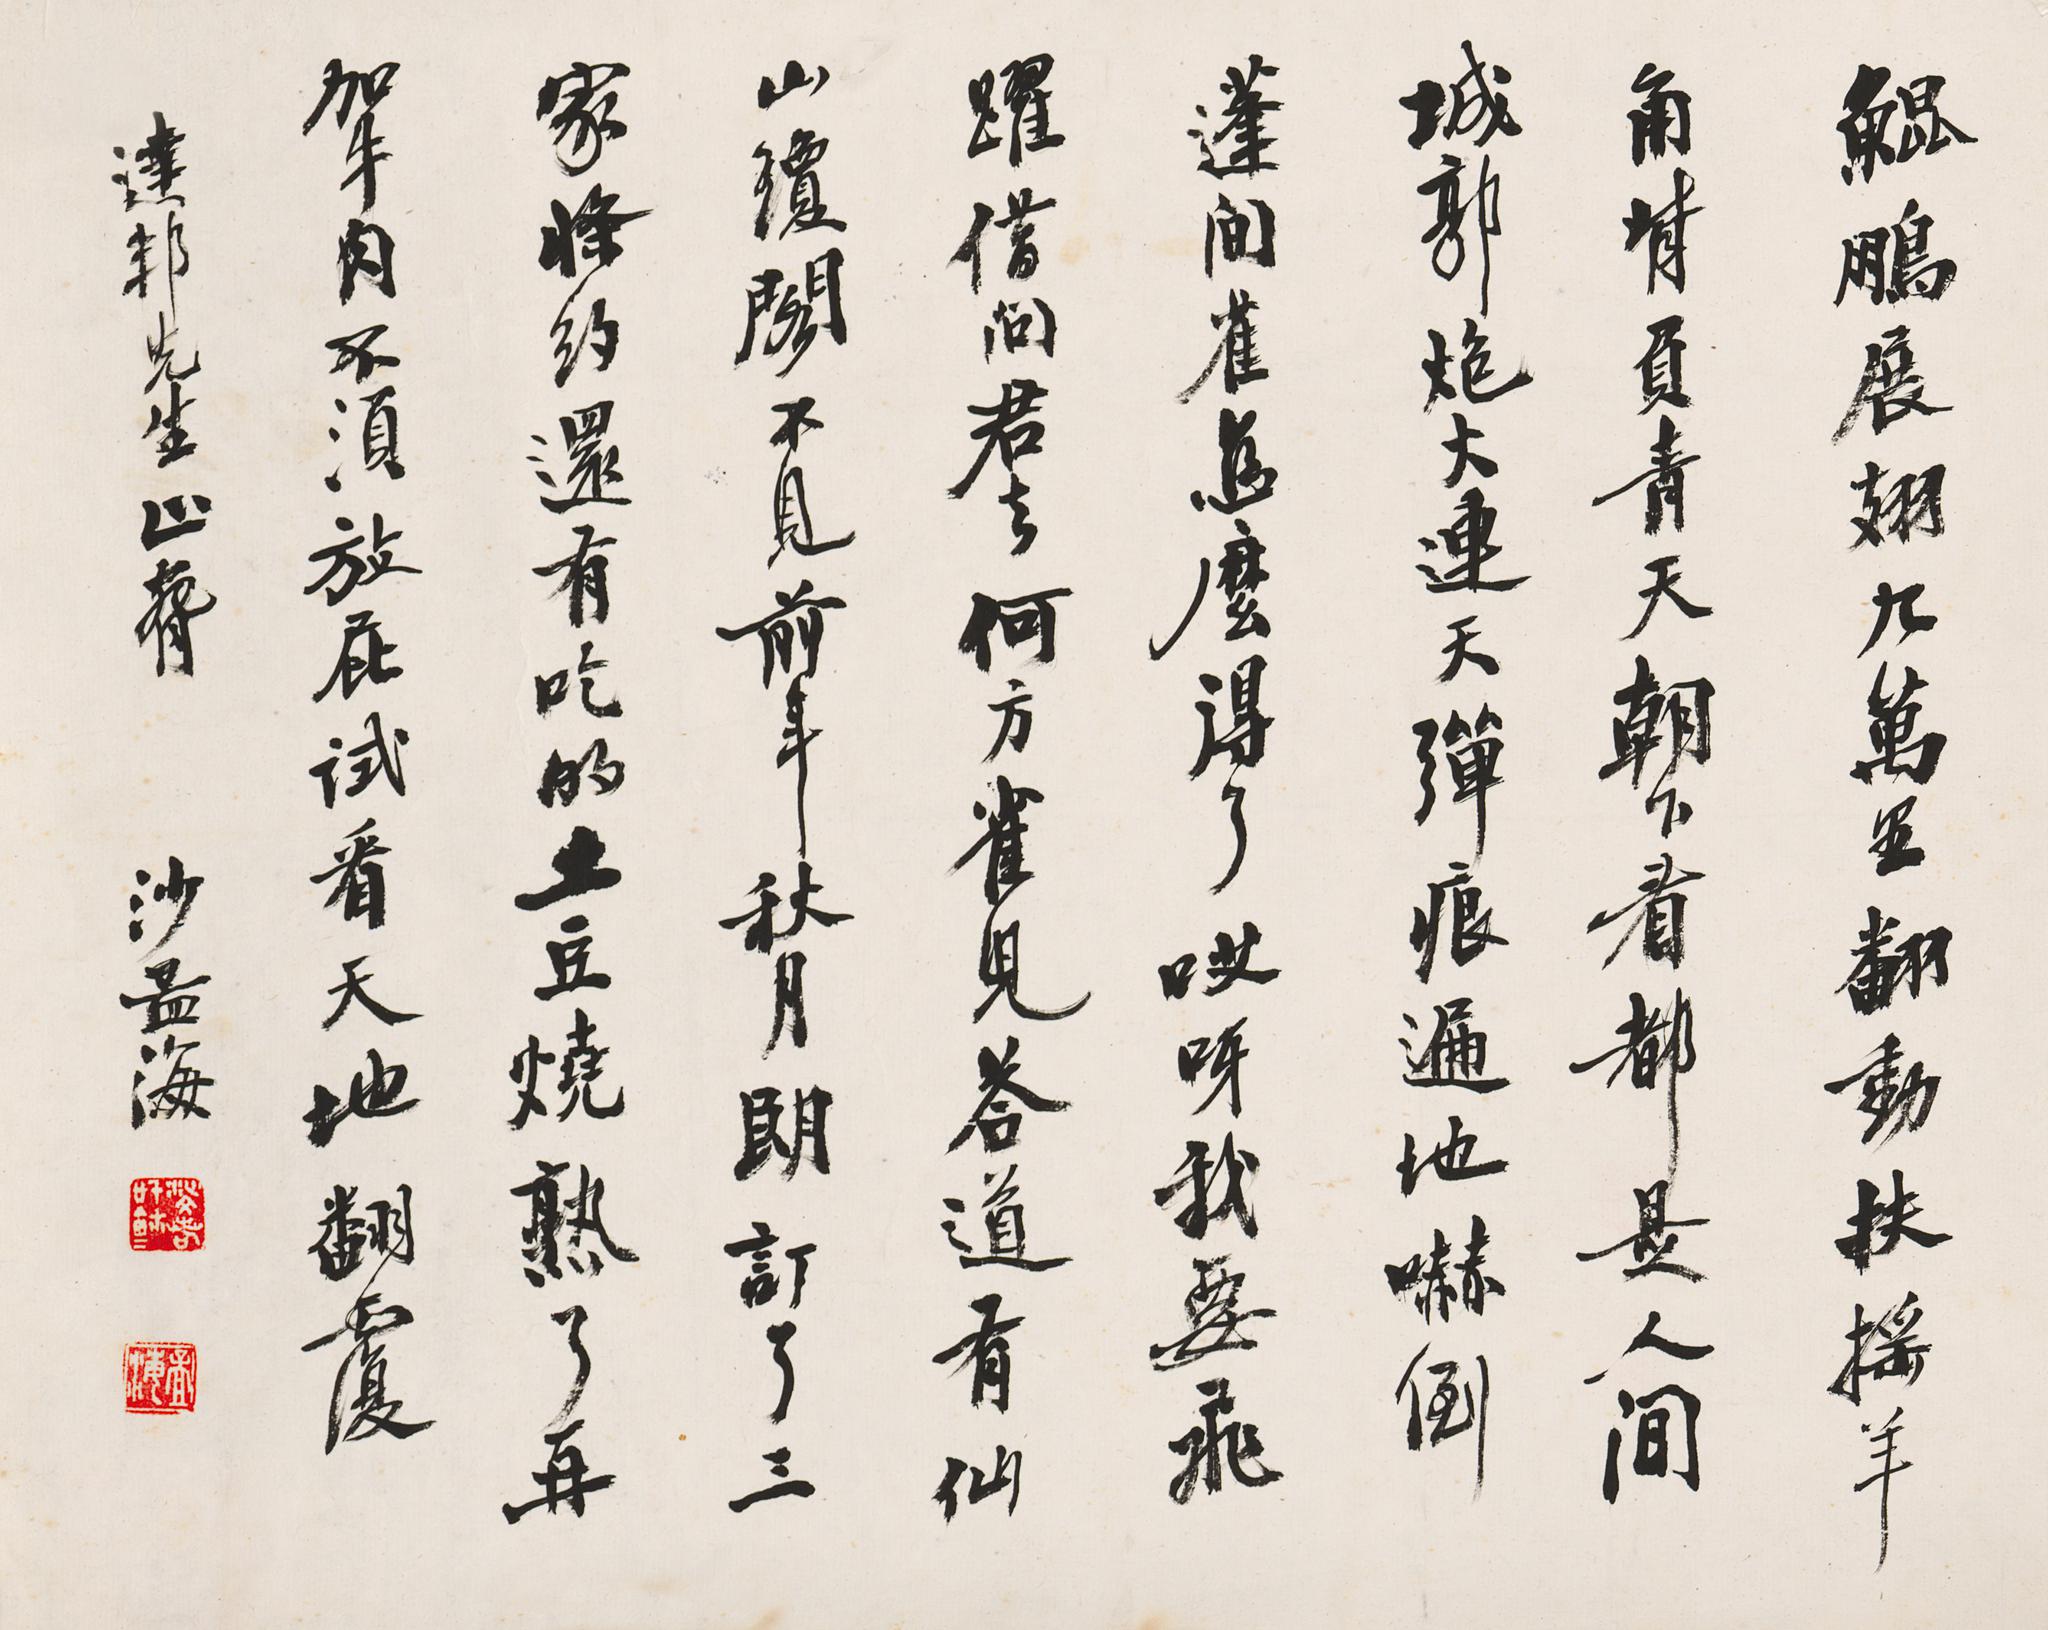 鯤鵬展翅九萬里翻動扶搖羊
角背負青天朝下看都是人間
城郭炮火連天彈痕遍地嚇倒
蓬間雀怎麼得了哎呀我要飛
躍借問君去何方雀兒答道有仙
山瓊閣不見前年秋月朗訂了三
家條約還有吃的土豆燒熟了再
加牛肉不須放屁試看天地翻覆
達邦先生正 沙孟海
孟海